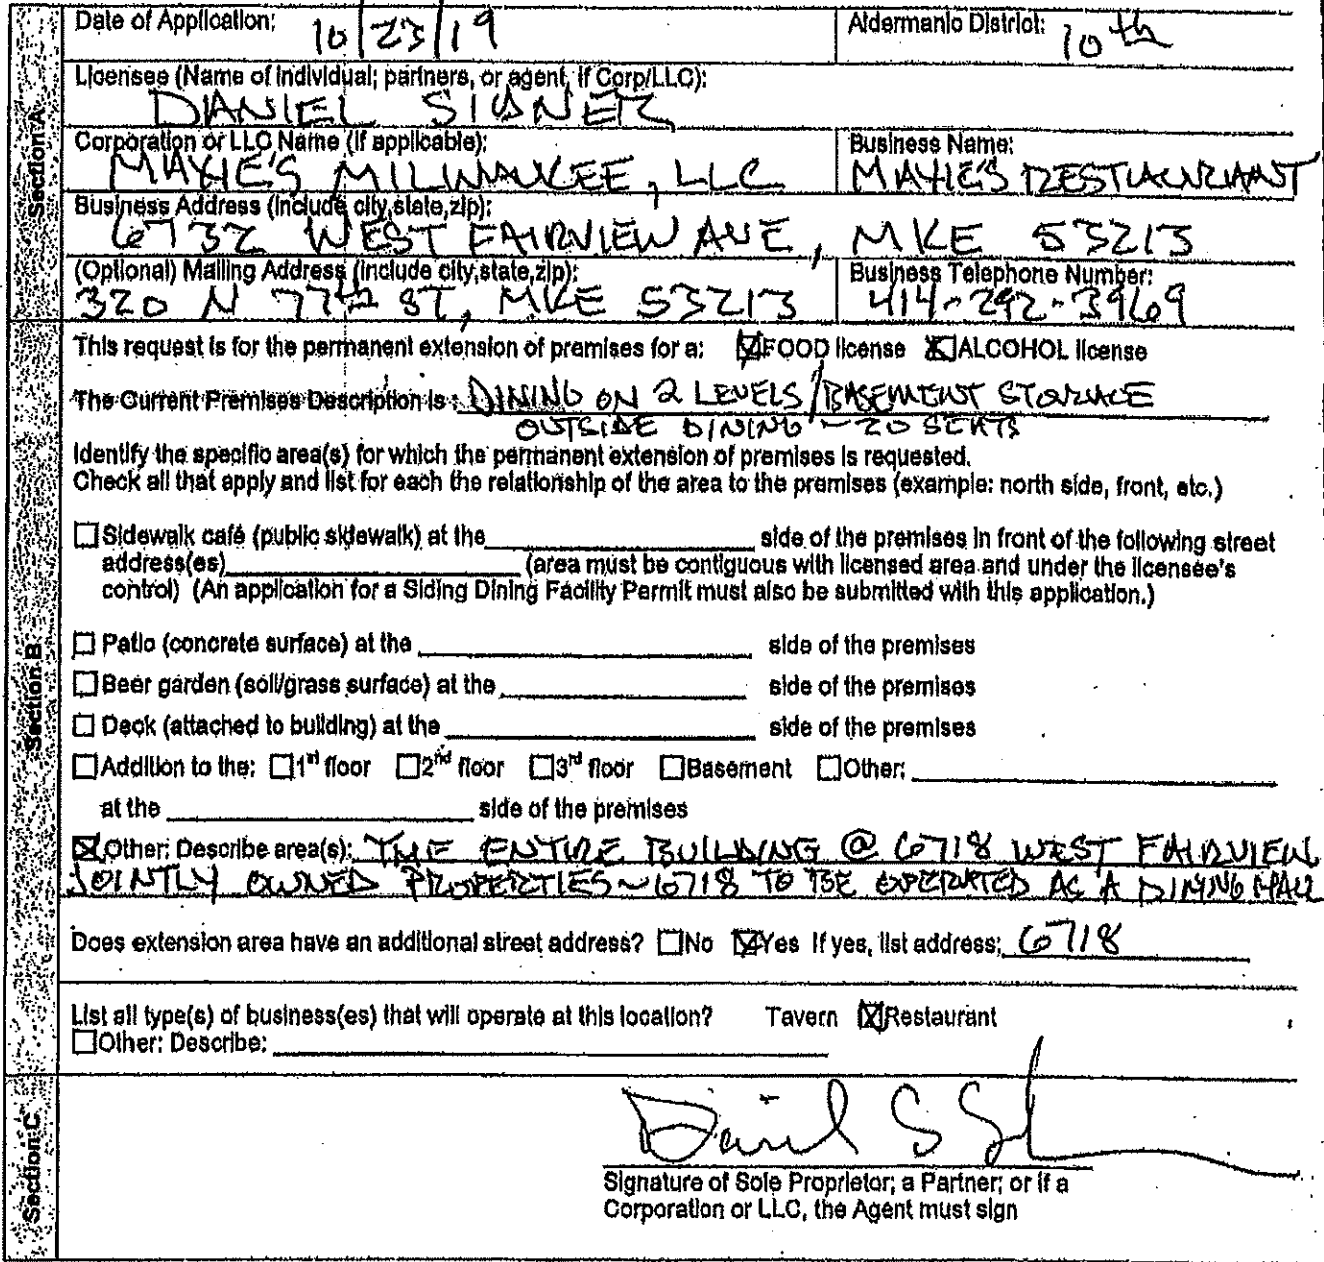 Date of Application: 10/23/19 Aldermanic District: 10th
Licensee (Name of individual; partners, or agent, if Corp/LLC):
DANIEL SIDNER
Corporation or LLC Name (if applicable): Business Name:
MAXIE'S MILWAUKEE, LLC MAXIE'S RESTAURANT
Business Address (include city,state,zip):
6732 WEST FAIRVIEW AVE, MKE 53213
(Optional) Mailing Address (include city,state,zip): Business Telephone Number:
320 N 77th ST, MKE 53213 414-292-3969
Section A
This request is for the permanent extension of premises for a: ☒FOOD license ☒ALCOHOL license
The Current Premises Description is: DINING ON 2 LEVELS/BASEMENT STORAGE
OUTSIDE DINING ~ 20 SEATS
Identify the specific area(s) for which the permanent extension of premises is requested.
Check all that apply and list for each the relationship of the area to the premises (example: north side, front, etc.)
☐Sidewalk café (public sidewalk) at the side of the premises in front of the following street
address(es) (area must be contiguous with licensed area and under the licensee's
control) (An application for a Siding Dining Facility Permit must also be submitted with this application.)
☐ Patio (concrete surface) at the side of the premises
☐ Beer garden (soil/grass surface) at the side of the premises
☐ Deck (attached to building) at the side of the premises
☐Addition to the: ☐1st floor ☐2nd floor ☐3rd floor ☐Basement ☐Other:
at the side of the premises
☒Other: Describe area(s): THE ENTIRE BUILDING @ 6718 WEST FAIRVIEW
JOINTLY OWNED PROPERTIES ~ 6718 TO BE OPERATED AS A DINING HALL
Does extension area have an additional street address? ☐No ☒Yes If yes, list address: 6718
List all type(s) of business(es) that will operate at this location? Tavern ☒Restaurant
☐Other: Describe:
Section B
Signature of Sole Proprietor; a Partner; or if a
Corporation or LLC, the Agent must sign
Section C